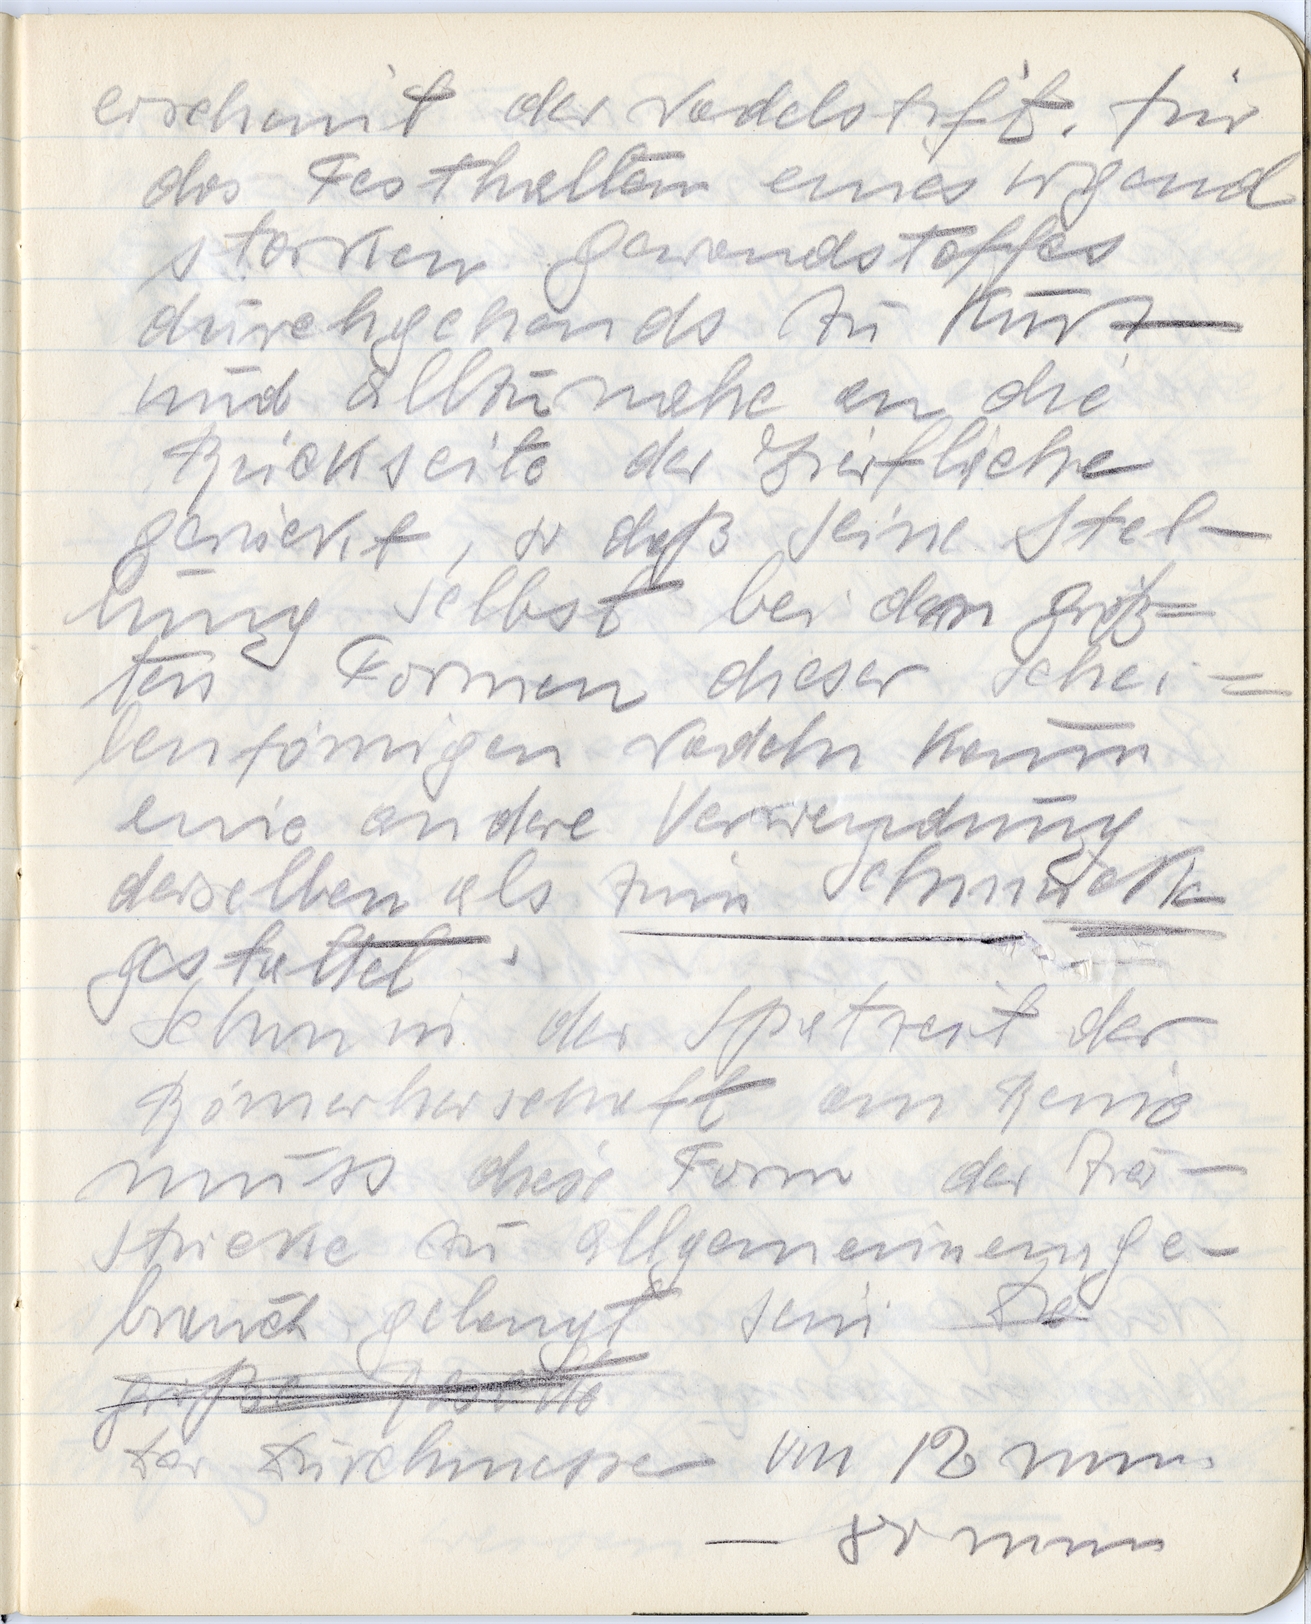 erscheint der Nadelstift. für
das Festhalten eines irgend
starken Gewandstoffes
durchgehends zu kurz
und allzunahe an die
Rückseite der Zierfläche
gerückt, so daß seine Stel-
lung selbst bei den größ=
ten Formen dieser schei=
benförmigen Nadeln kaum
eine andere Verwendung
derselben als zum Schmuck
gestattet.
Schon in der Spätzeit der
Römerherschaft am Reine
muss diese Form der Zier-
stücke zu allgemeinemge-
brauch gelangt sein
größe
Der Durchmesser von 12 mm
— 80 mm